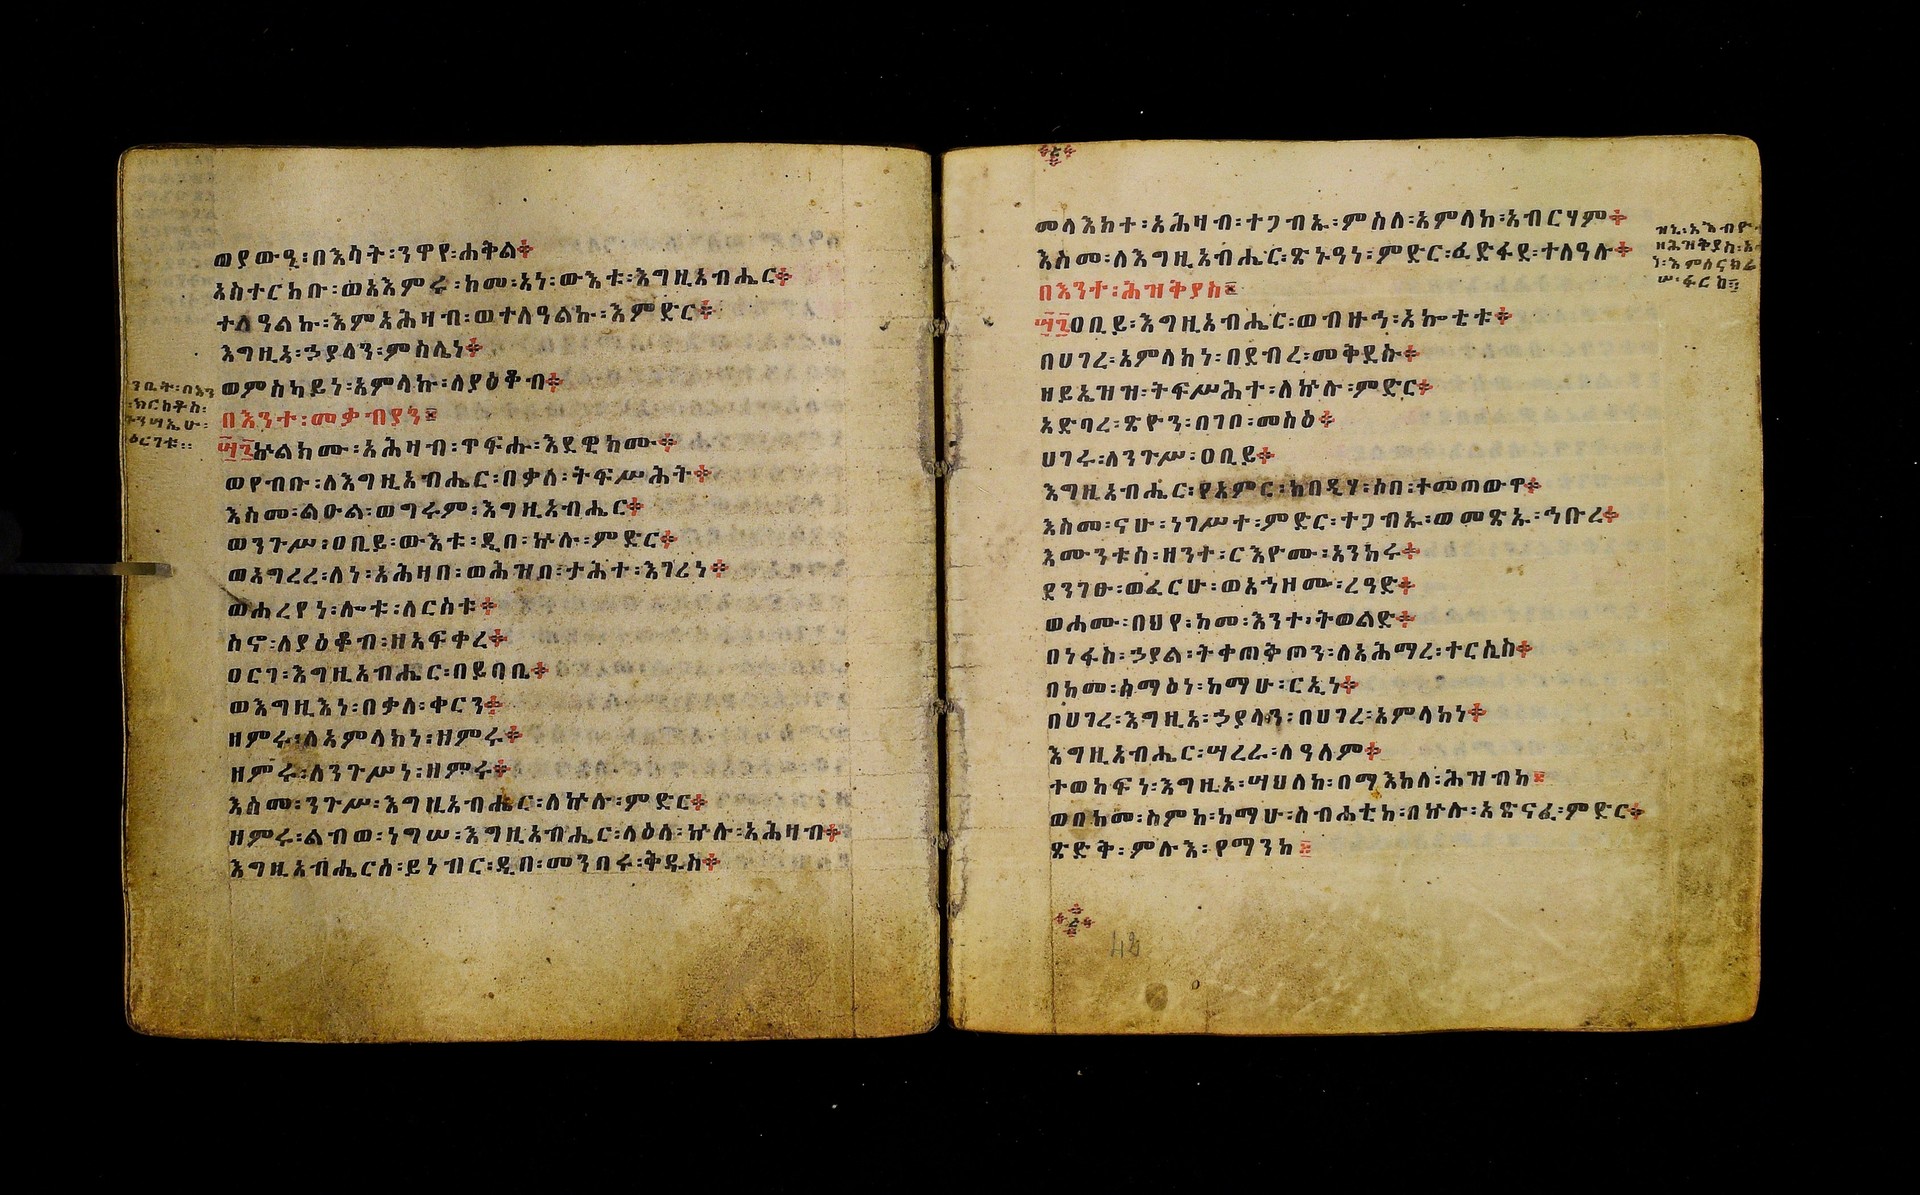 ወያውዒ፡በእሳት፡ንዋየ፡ሐቅል።
አስተርክቡ፡ወአእምሩ፡ከመ፡አነ፡ውእቱ፡እግዚአብሔር።
ተለዓልኩ፡እምአሕዛብ፡ወተለዓልኩ፡እምድር።
እግዚአ፡ኃያላን፡ምስሌነ።
ወምስካይነ፡አምላኩ፡ለያዕቆብ።
በእንተ፡መቃብያን።
ኵልክሙ፡አሕዛብ፡ጥፍሑ፡እደዊክሙ።
ወየብቡ፡ለእግዚአብሔር፡በቃለ፡ትፍሥሕት።
እስመ፡ልዑል፡ወግሩም፡እግዚአብሔር።
ወንጉሥ፡ዐቢይ፡ውእቱ፡ዲበ፡ኵሉ፡ምድር።
ወአግረረ፡ለነ፡አሕዛበ፡ወሕዝበ፡ታሕተ፡እገሪነ።
ወሐረየነ፡ሎቱ፡ለርስቱ።
ስኖ፡ለያዕቆብ፡ዘአፍቀረ።
ዐርገ፡እግዚአብሔር፡በይባቤ።
ወእግዚእነ፡በቃለ፡ቀርን።
ዘምሩ፡ለአምላክነ፡ዘምሩ።
ዘምሩ፡ለንጉሥነ፡ዘምሩ።
እስመ፡ንጉሥ፡እግዚአብሔር፡ለኵሉ፡ምድር።
ዘምሩ፡ልብወ፡ነግሠ፡እግዚአብሔር፡ላዕለ፡ኵሉ፡አሕዛብ።
እግዚአብሔርሰ፡ይነብር፡ዲበ፡መንበሩ፡ቅዱስ።
መላእክተ፡አሕዛብ፡ተጋብኡ፡ምስለ፡አምላከ፡አብርሃም።
እስመ፡ለእግዚአብሔር፡ጽኑዓነ፡ምድር፡ፈድፋደ፡ተለዓሉ።
በእንተ፡ሕዝቅያስ።
ዐቢይ፡እግዚአብሔር፡ወብዙኅ፡አኰቴቱ።
በሀገረ፡አምላክነ፡በደብረ፡መቅደሱ።
ዘይእዝዝ፡ትፍሥሕተ፡ለኵሉ፡ምድር።
አድባረ፡ጽዮን፡በገቦ፡መስዕ።
ሀገሩ፡ለንጉሥ፡ዐቢይ።
እግዚአብሔር፡የአምር፡ክበዲሃ፡ሶበ፡ተመጠውዋ።
እስመ፡ናሁ፡ነገሥተ፡ምድር፡ተጋብኡ፡ወመጽኡ፡ኅቡረ።
እሙንቱስ፡ዘንተ፡ርእዮሙ፡አንከሩ።
ደንገፁ፡ወፈርሁ፡ወአኀዘሙ፡ረዓድ።
ወሐሙ፡በህየ፡ከመ፡እንተ፡ትወልድ።
በነፋስ፡ኃያል፡ትቀጠቅጦን፡ለአሕማረ፡ተርሲስ።
በከመ፡ሰማዕነ፡ከማሁ፡ርኢነ።
በሀገረ፡እግዚአ፡ኃያላን፡በሀገረ፡አምላክነ።
እግዚአብሔር፡ሣረራ፡ለዓለም።
ተወከፍነ፡እግዚኦ፡ሣህለከ፡በማእከለ፡ሕዝብከ።
ወበከመ፡ስምከ፡ከማሁ፡ስብሐቲከ፡በኵሉ፡አጽናፈ፡ምድር።
ጽድቅ፡ምሉእ፡የማንከ።
42